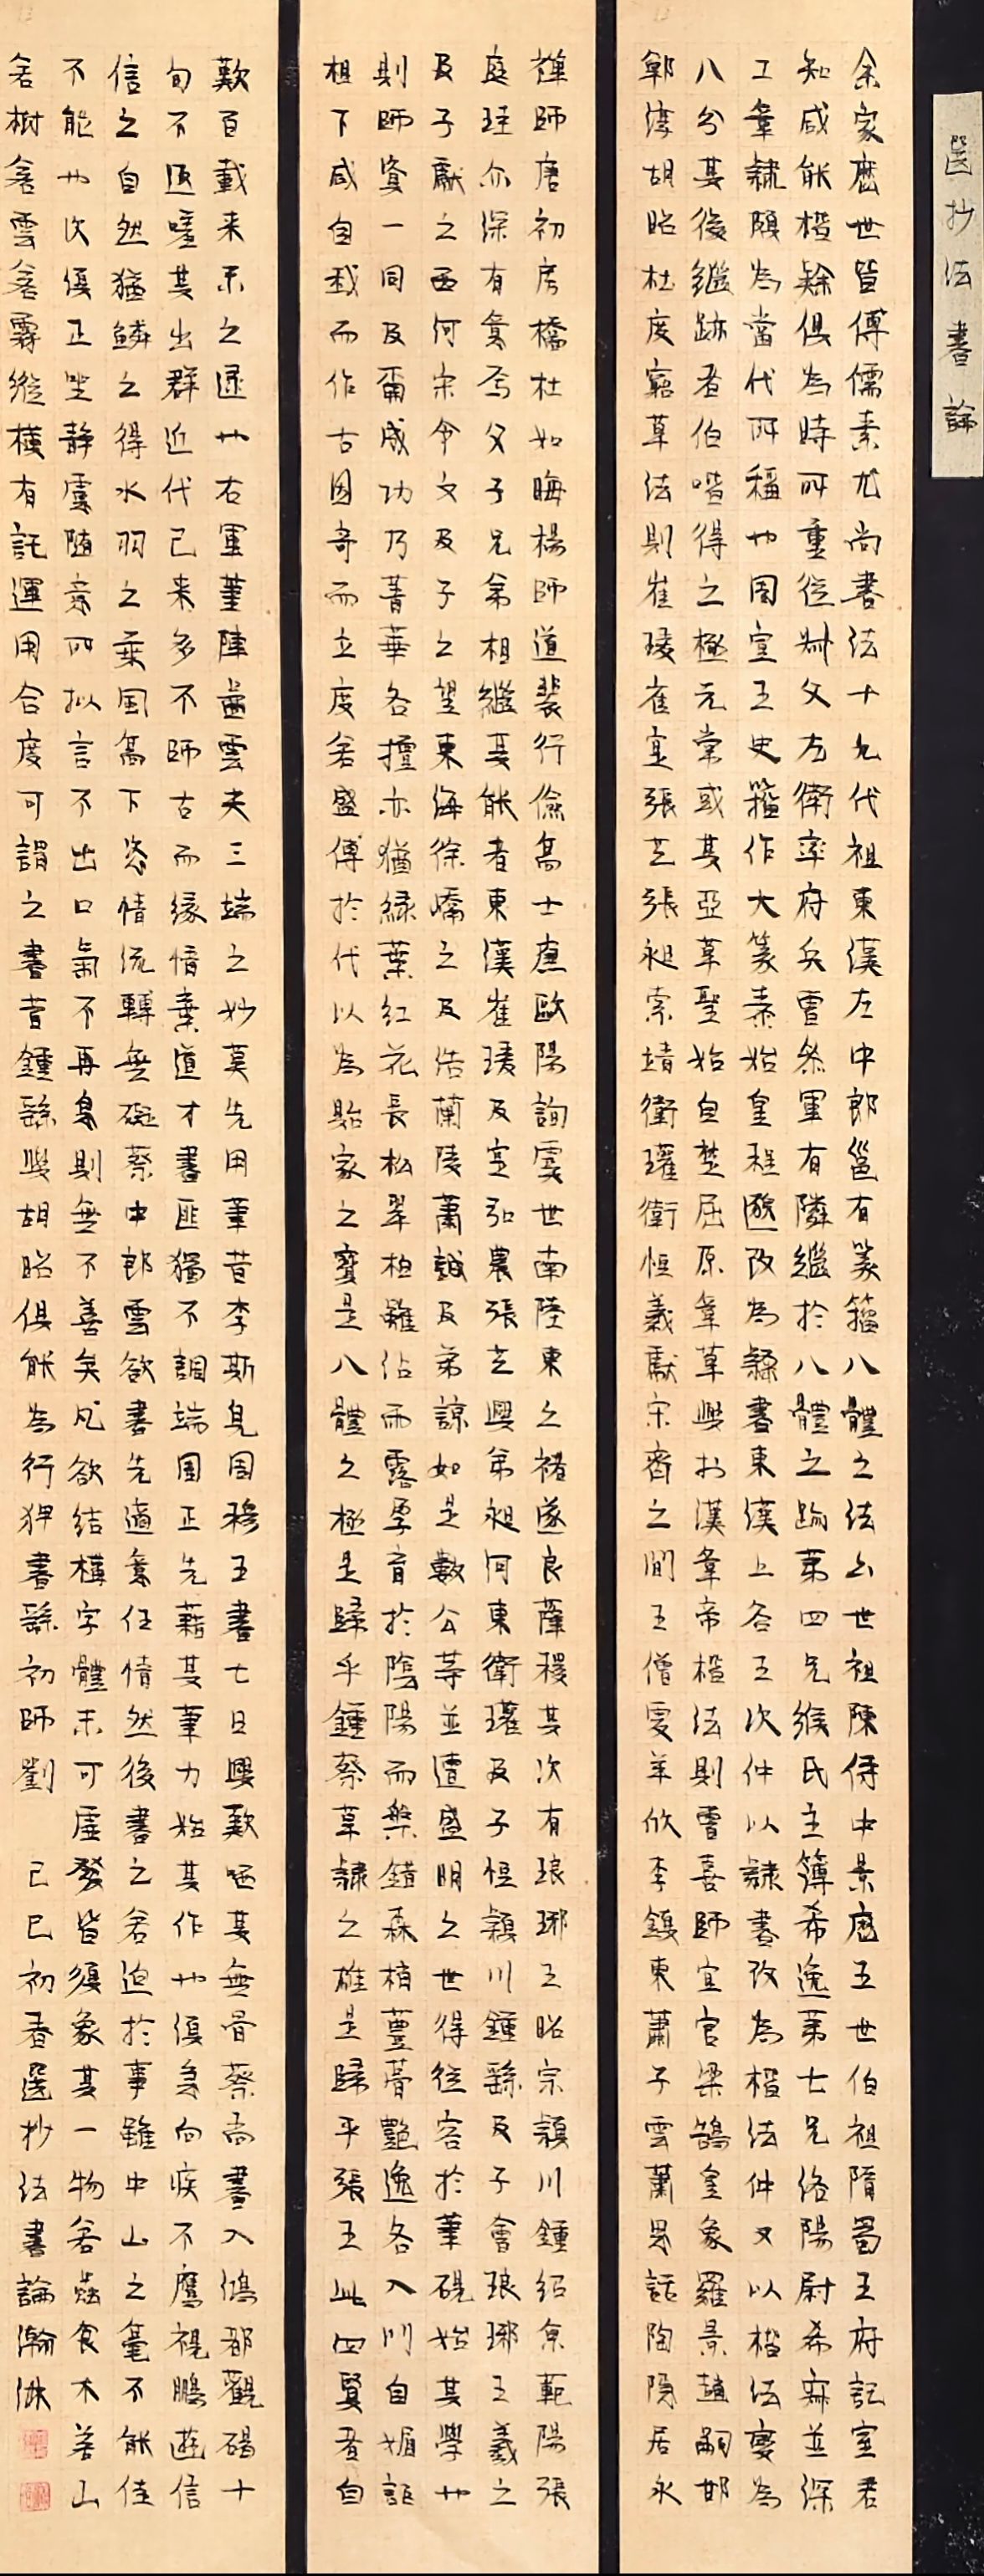 選抄法書論
余家歷世皆傳儒素尤尚書法十九代祖東漢左中郎邕有篆籀八體之法六世祖陳侍中景歷五世伯祖隋蜀王府記室君
知咸能楷隸俱為時所重從叔父左衛率府兵曹叅軍有隣繼於八體之跡第四兄緱氏主簿希逸第七兄洛陽尉希寂並深
工草隸頗為當代所稱也周宣王史籀作大篆秦始皇程邈改為隸書東漢上谷王次仲以隸書改為楷法仲又以楷法變為
八分其後繼跡者伯喈得之極元常或其亞草聖始自楚屈原章草興於漢章帝楷法則曹喜師宜官梁鵠皇象羅景趙嗣邯
鄲淳胡昭杜度窮草法則崔瑗崔寔張芝張昶索靖衛瓘衛恒羲獻宋齊之間王僧虔羊欣李鎮東蕭子雲蕭思話陶隱居永
禪師唐初房橋杜如晦楊師道裴行儉高士廉歐陽詢虞世南陸東之褚遂良薩稷其次有琅琊王昭宗潁川鍾紹京範陽張
庭珪亦深有意焉父子兄弟相繼其能者東漢崔瑗及寔弘農張芝與弟昶河東衛瓘及子恒潁川鍾繇及子會琅琊王羲之
及子獻之西河宋令文及子之望東海徐嶠之及浩蘭陵蕭誠及弟諒如是數公等並遭盛明之世得從容於筆硯始其學也
則師資一同及爾成功乃菁華各擅亦猶綠葉紅花長松翠柏雖沾雨露孕育於陰陽而槃錯森梢豐蓉艷逸各入門自媚詎
相下咸自我而作古因奇而立度若盛傳於代以為貽家之寶是八體之極是歸乎鍾蔡草隸之雄是歸乎張王此四賢者自
歎百載来未之逮也右軍筆陣圖雲夫三端之妙莫先用筆昔李斯見周穆王書七日興歎晒其無骨蔡尚書入鴻都觀碣十
旬不返嗟其出群近代已来多不師古而緣情棄道才書匪獨不調端周正先藉其筆力始其作也須急向疾不鷹視鵬遊信
信之自然猶鱗之得水羽之乘風高下恣情流轉無礙蔡中郎雲欲書先適意任情然後書之若迫於事雖中山之毫不能佳
不能也次須正坐靜慮随意所拟言不出口氣不再息則無不善矣凡欲結構字體未可虛發皆須象其一物若蟲食木若山
若樹若雲若霧縱橫有託運用合度可謂之書昔鍾繇與胡昭俱能為行狎書繇初師劉 己巳初春選抄法書論瀚淋